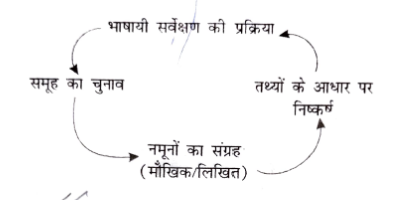 भाषायी सर्वेक्षण की प्रक्रिया
समूह का चुनाव
तथ्यों के आधार पर
निष्कर्ष
नमूनों का संग्रह
(मौखिक/लिखित)